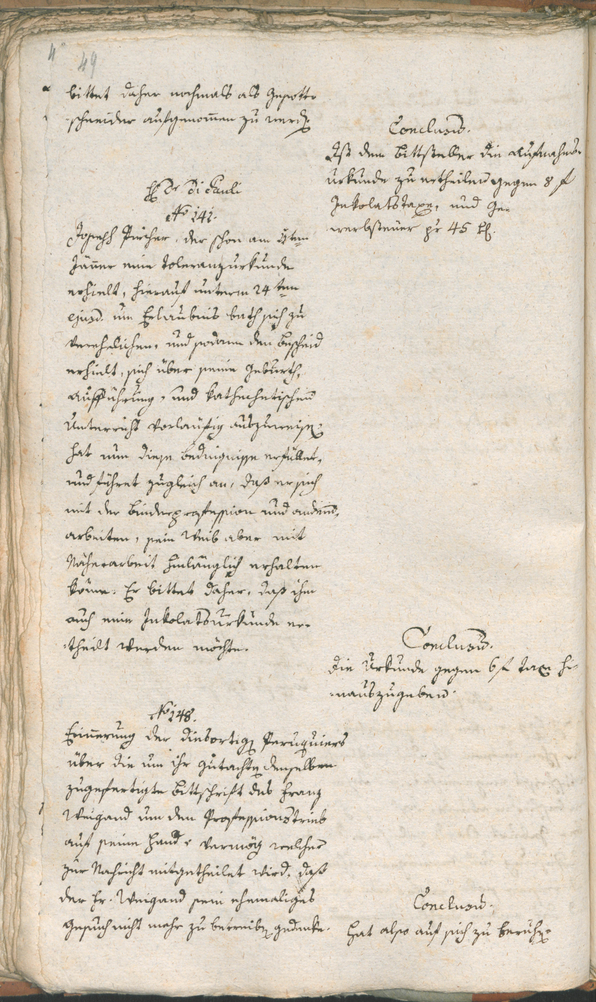 49
bittet daher nochmals als Inwohner
schneider aufgenommen zu werden
Conclusum.
Daß dem Bittsteller die Aufnahms-
urkunde zu ertheilen gegen 8 f
Inkolatstaxe, und Ge-
werbsteuer pr 45 xr.
Hr Dr Di Pauli
No 141.
Joseph Pircher, der schon am 5ten
Jänner eine Toleranzurkunde
erhielt, hierauf unterm 24ten
ejusd. um Erlaubnis bath sich zu
verehelichen, und sodann den Bescheid
erhielt, sich über seine Geburth,
Aufführung, und kathechetischen
Unterricht vorläufig auszuweisen
hat nun diese Bedingnisse erfüllet,
und führet zugleich an, daß er sich
mit der Binderprofession und andern
arbeiten, sein Weib aber mit
Näherarbeit hinlänglich erhalten
könne. Er bittet daher, daß ihm
auch eine Inkolatsurkunde er-
theilt werden möchte.
Conclusum.
Die Urkunde gegen 6 f taxe hi-
nauszugeben.
No 148.
Erinnerung der diesortigen Peruquiers
über die um ihr Gutachten denselben
zugefertigte Bittschrift des Franz
Weigand um den Professionstrieb
auf seine Hand, vermög welcher
zur Nachricht mitgetheilet wird, daß
der Hr. Weigand sein ehemaliges
Gesuch nicht mehr zu betreiben gedenke.
Conclusum.
Hat also auf sich zu beruhen